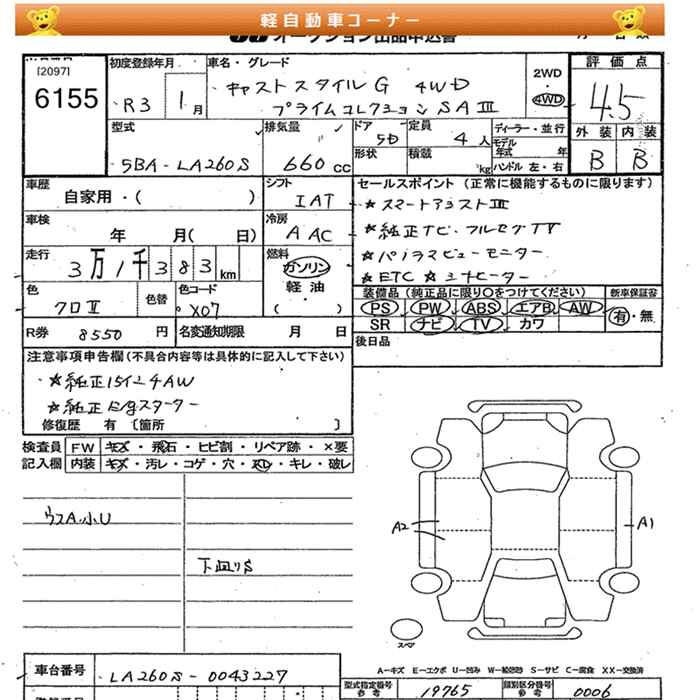 軽自動車コーナー
[2097]
6155
初度登録年月
R3 1月
車名・グレード
キャストスタイルG 4WD
プライムコレクションSAⅢ
2WD
・
4WD
評価点
4.5
外装 内装
B B
型式
5BA-LA260S
排気量
660cc
ドア
5D
定員
4人
形状
積載
kg
ディーラー・並行
モデル年式 年
ハンドル 左・右
車歴
自家用・( )
シフト
IAT
セールスポイント (正常に機能するものに限ります)
★スマートアシストⅢ
★純正ナビ・フルセグTV
★パノラマビューモニター
★ETC ★シートヒーター
車検
年 月( 日)
冷房
AAC
走行
3万1千383km
燃料
ガソリン
・
軽油
( )
色
クロⅡ
色替
色コード
X07
装備品 (純正品に限り○をつけてください)
PS PW ABS エアB AW
SR ナビ TV カワ
新車保証書
有・無
R券 8550円
名変通知期限 月 日
後日品
注意事項申告欄(不具合内容等は具体的に記入して下さい)
★純正15インチAW
★純正E/gスターター
修復歴 有 [箇所 ]
検査員
記入欄
FW キズ・飛石・ヒビ割・リペア跡・×要
内装 キズ・汚レ・コゲ・穴・スレ・キレ・破レ
ウスA.小U
下廻りS
A2
A1
スペア
A―キズ E―エクボ U―凹み S―サビ C―腐食 XX―交換済
車台番号
LA260S-0043227
型式指定番号
参考
19765
類別区分番号
参考
0006